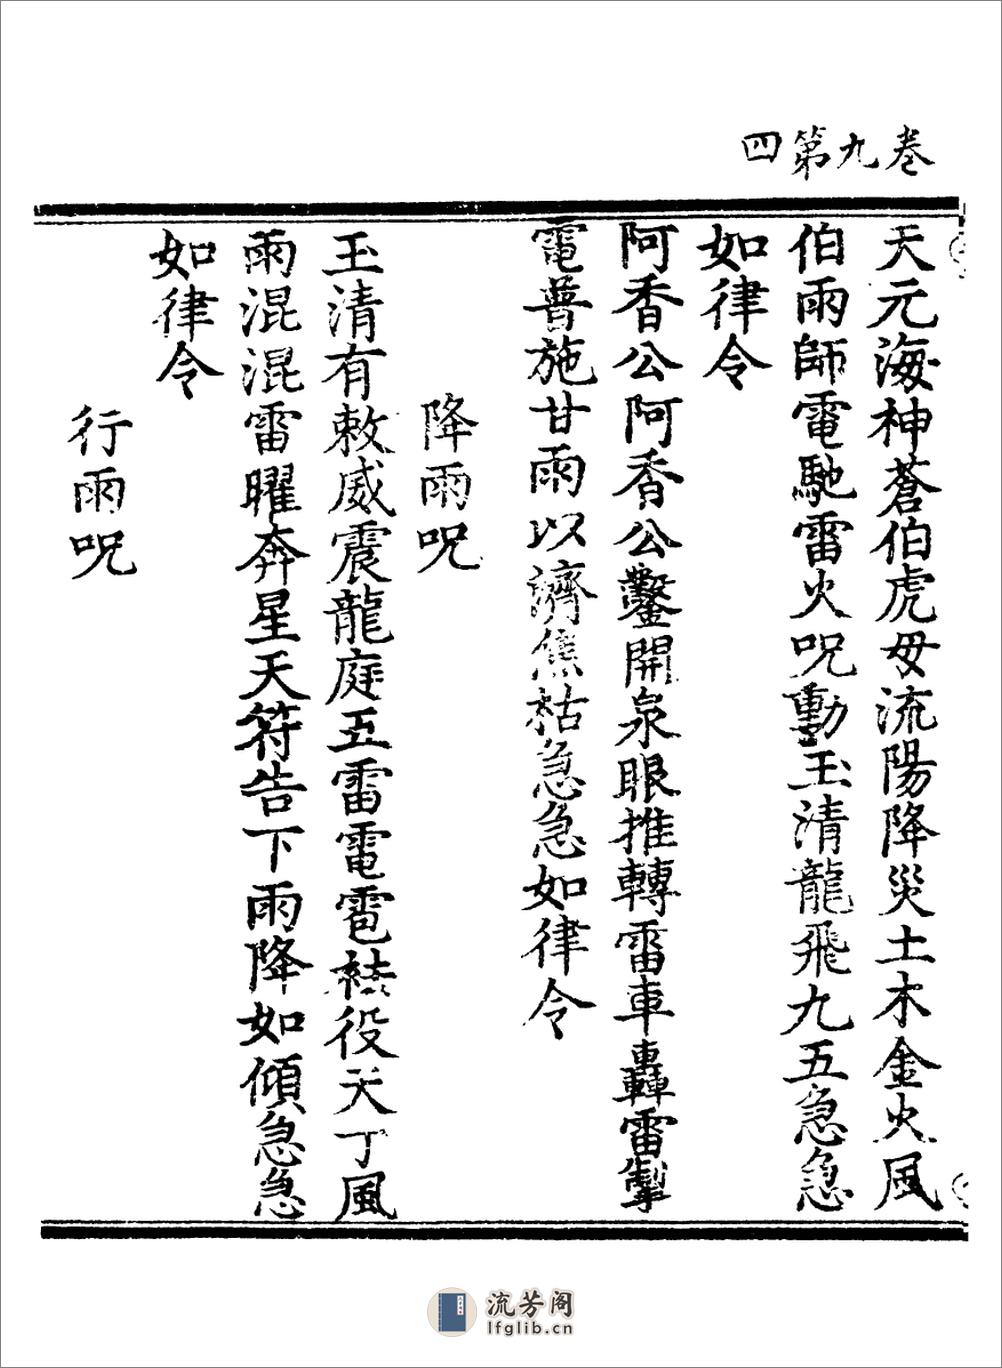 卷九第四
天元海神蒼伯虎毋流陽降災土木金火風
伯雨師電馳雷火呪動玉清龍飛九五急急
如律令
阿香公阿香公鑿開泉眼推轉雷車轟雷掣
電普施甘雨以濟焦枯急急如律令
降雨呪
玉清有敕威震龍庭五雷電雹結役天丁風
雨混混雷曜奔星天符告下雨降如傾急急
如律令
行雨呪
流芳阁
lfglib.cn